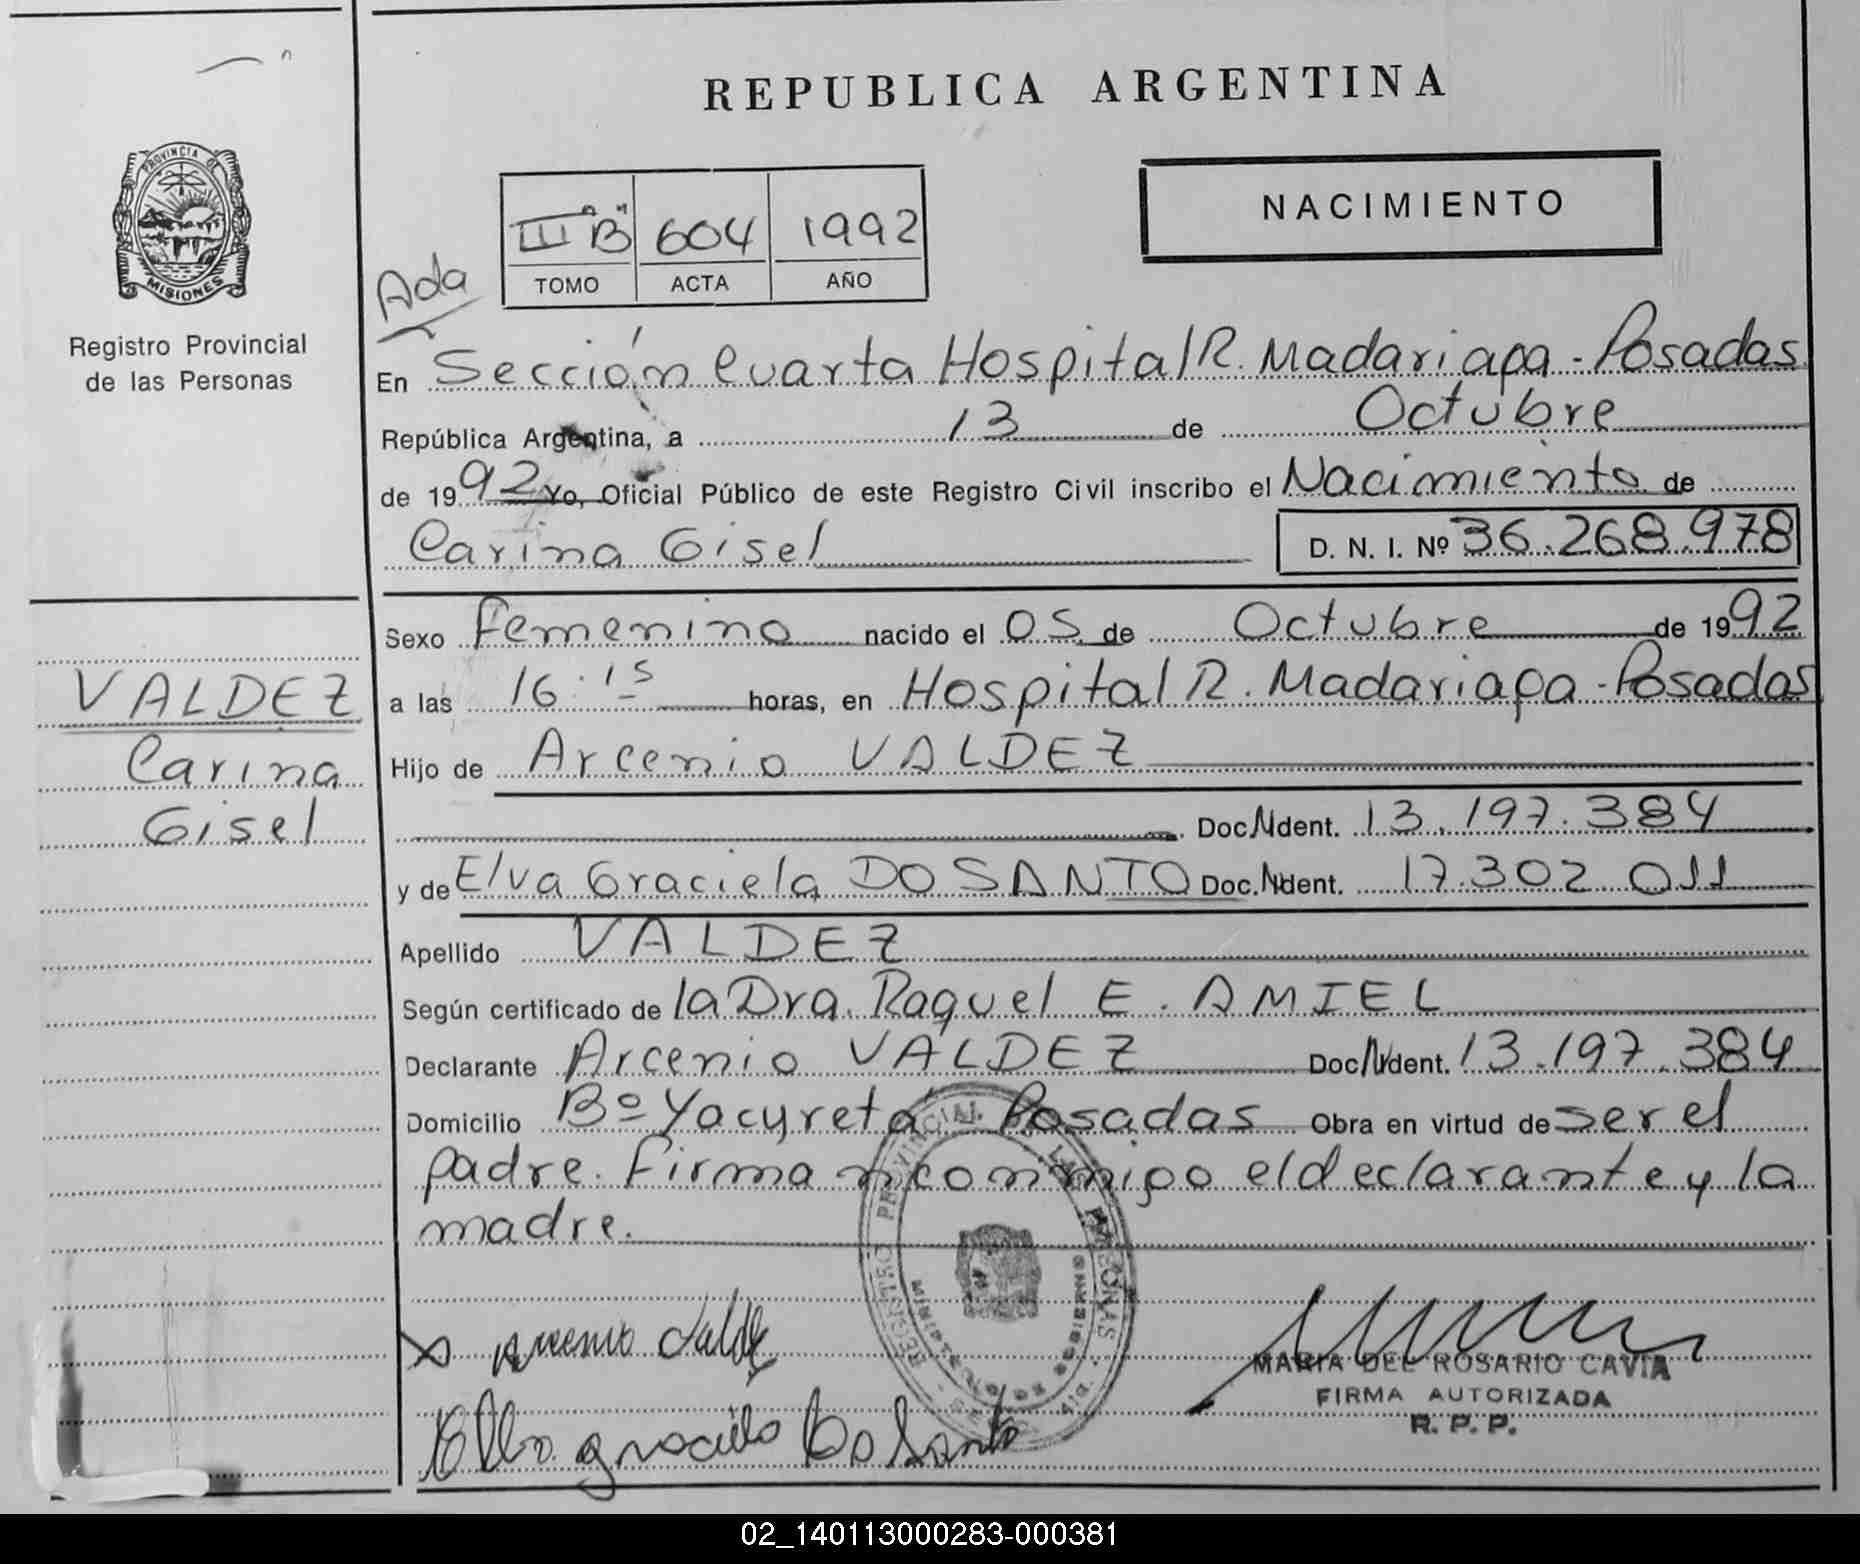 REPUBLICA ARGENTINA
PROVINCIA DE
MISIONES
Registro Provincial
de las Personas
NACIMIENTO
III "B" 604 1992
TOMO ACTA AÑO
Ada
En Sección Cuarta Hospital R. Madariaga - Posadas
República Argentina, a 13 de Octubre
de 1992 Yo, Oficial Público de este Registro Civil inscribo el Nacimiento de
Carina Gisel D. N. I. Nº 36.268.978
Sexo Femenino nacido el 05 de Octubre de 1992
a las 16:15 horas, en Hospital R. Madariaga - Posadas
Hijo de Arcenio VALDEZ
Doc. Ident. 13.197.384
y de Elva Graciela DO SANTO Doc. Ident. 17.302.011
Apellido VALDEZ
Según certificado de la Dra. Raquel E. AMIEL
Declarante Arcenio VALDEZ Doc. Ident. 13.197.384
Domicilio Bº Yacyretá Posadas Obra en virtud de ser el
padre. Firman conmigo el declarante y la
madre.
VALDEZ
Carina
Gisel
REGISTRO PROVINCIAL DE LAS PERSONAS
MINISTERIO DE GOBIERNO
Arcenio Valdez
Elva Graciela Do Santo
MARIA DEL ROSARIO CAVIA
FIRMA AUTORIZADA
R. P. P.
02_140113000283-000381